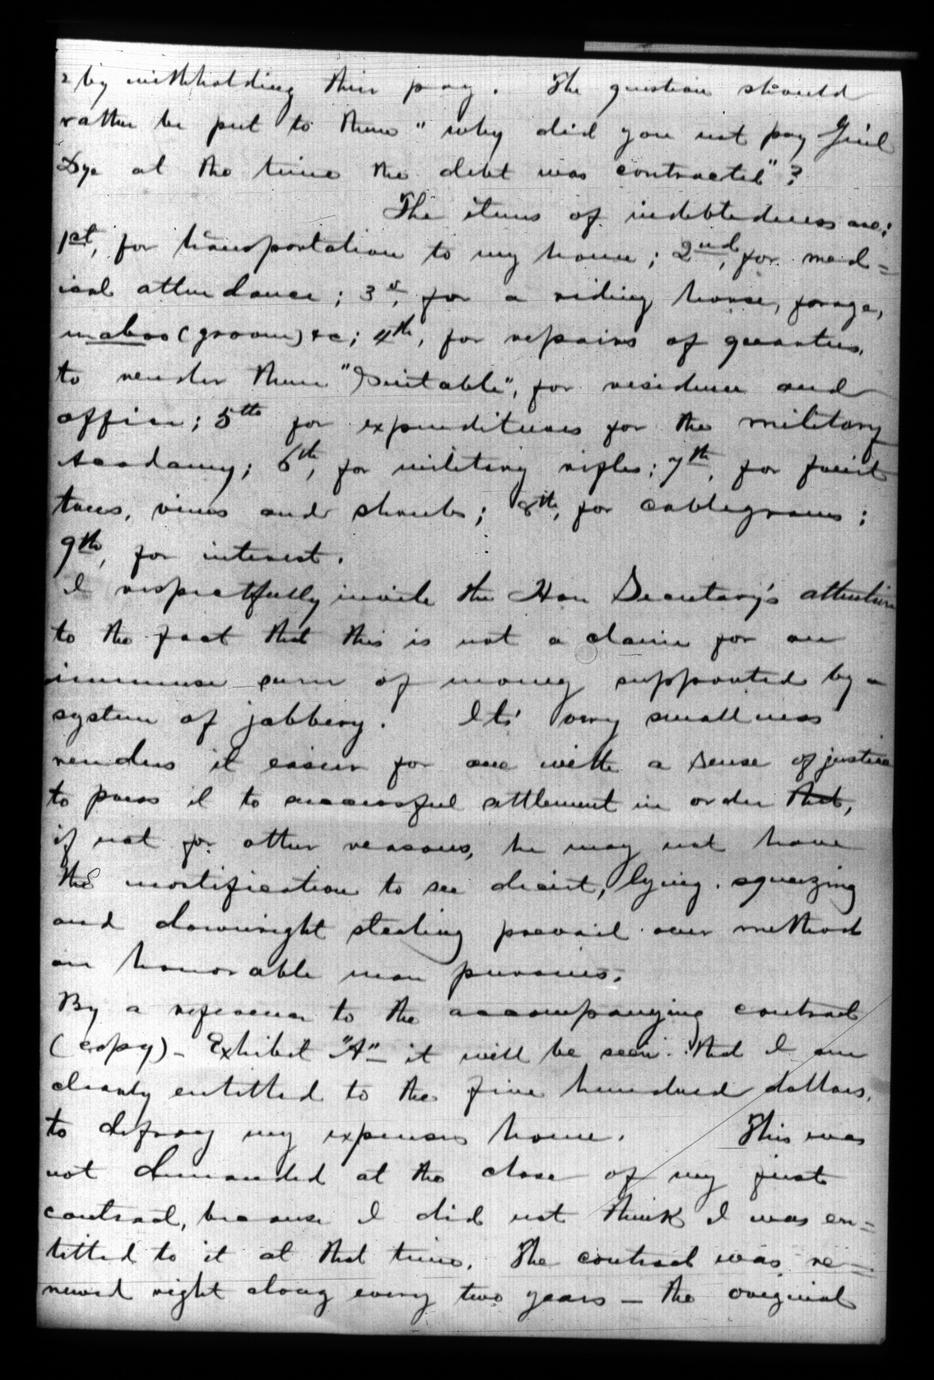 by withholding their pay. The question should
rather be put to them "why did you not pay Gen'l
Dye at the time the debt was contracted"?
The items of indebtedness are:
1st, for transportation to my home; 2nd, for med=
ical attendance; 3d, for a riding horse, forage,
maboo (groom) &c; 4th, for repairs of quarters,
to render them "suitable", for residence and
office; 5th for expenditures for the military
Academy; 6th, for military rifles; 7th, for fruit
trees, vines and shrubs; 8th, for cablegrams;
9th, for interest.
I respectfully invite the Hon Secretary's attention
to the fact that this is not a claim for an
immense sum of money supported by a
system of jobbery. Its' very smallness
renders it easier for one with a sense of justice
to press it to successful settlement in order that,
if not for other reasons, he may not have
the mortification to see deceit, lying, squeezing
and downright stealing prevail over method
an honorable man pursues.
By a reference to the accompanying contract
(copy) - Exhibit "A" - it will be seen that I am
clearly entitled to the five hundred dollars,
to defray my expenses home. This was
not demanded at the close of my first
contract, because I did not think I was en=
titled to it at that time. The contract was re=
newed right along every two years - the original